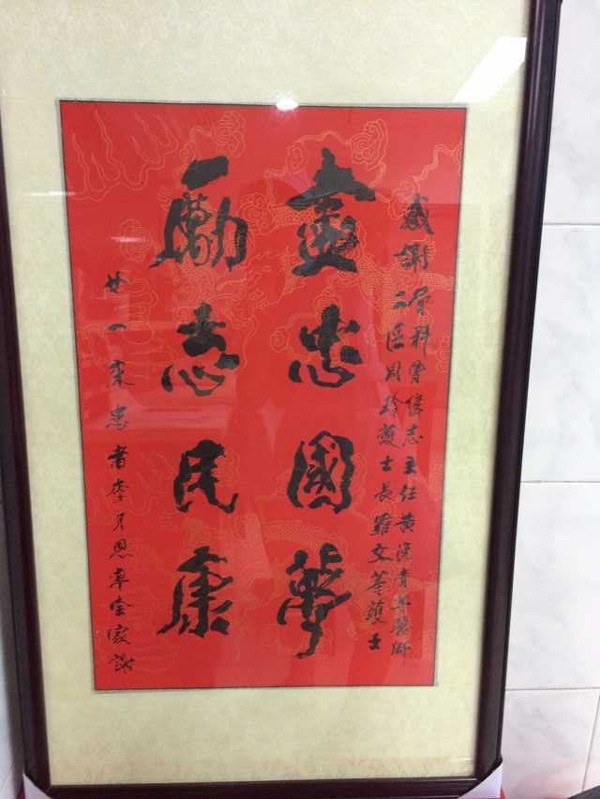 感謝骨科曾偉志主任黃漢青年醫師
二區周玲護士長羅文苓護士
盡忠國夢
勵志民康
廿一床患者李月恩率全家謝